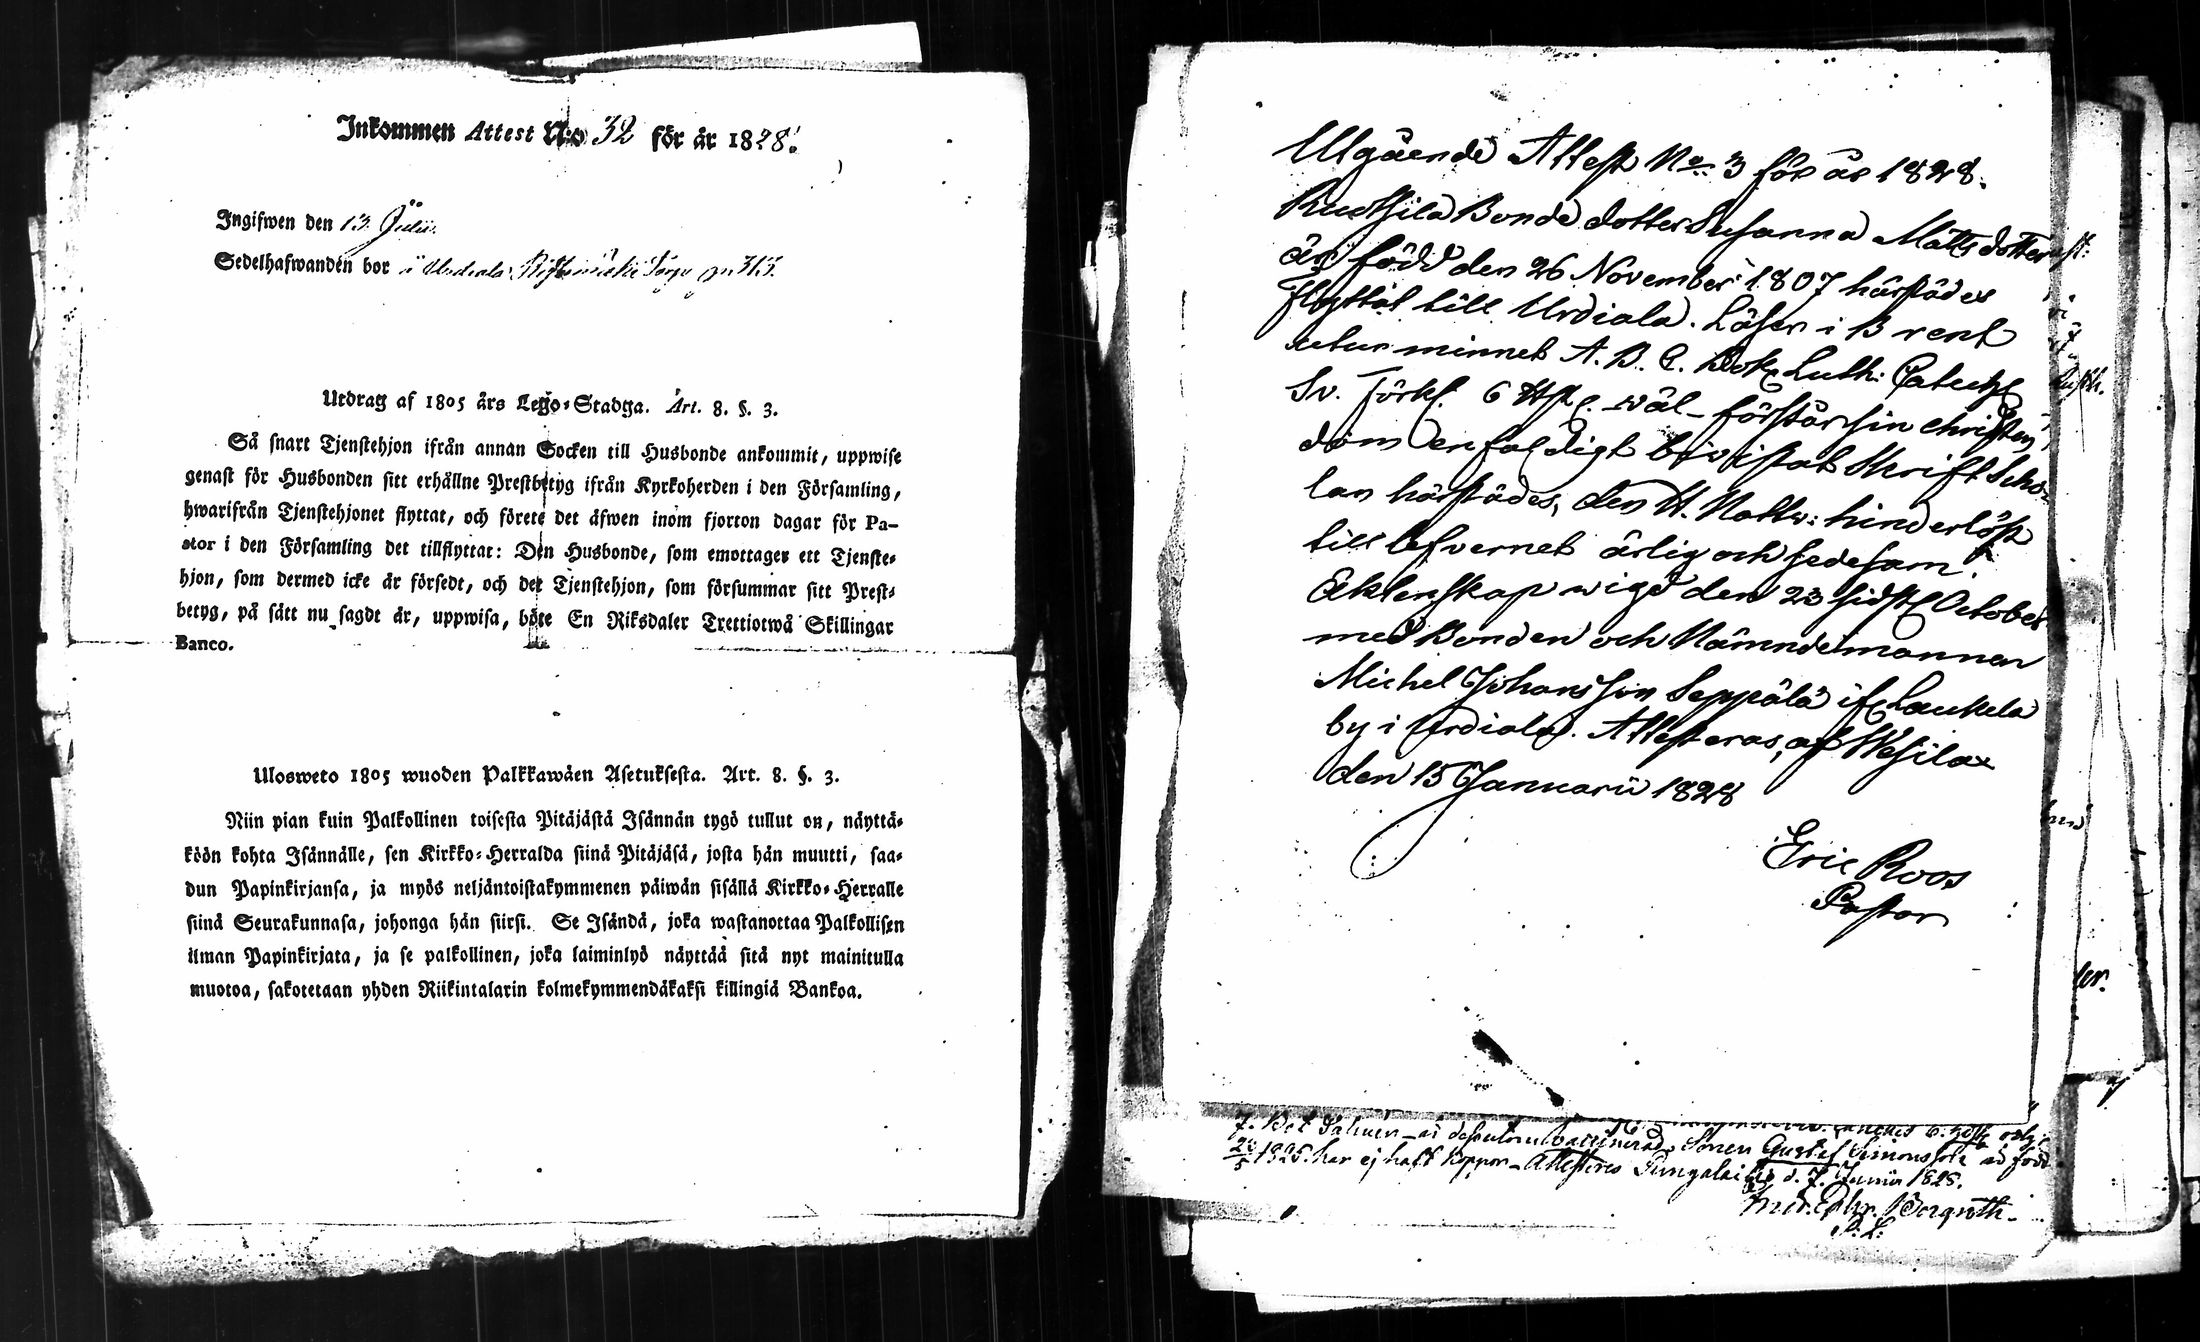 Inkommen Attest N:o 32 för år 1828.
Ingifwen den 13 Julii.
Sedelhafwanden bor i Urdiala pag 313.
Utdrag af 1805 års Lego-Stadga. Art. 8. §. 3.
Så snart Tjenstehjon ifrån annan Socken till Husbonde ankommit, uppwise
genast för Husbonden sitt erhållne Prestbetyg ifrån Kyrkoherden i den Församling,
hwarifrån Tjenstehjonet flyttat, och förete det äfwen inom fjorton dagar för Pa-
stor i den Församling det tillflyttat: Den Husbonde, som emottager ett Tjenste-
hjon, som dermed icke är försedt, och det Tjenstehjon, som försummar sitt Prest-
betyg, på sätt nu sagdt är, uppwisa, böte En Riksdaler Trettiotwå Skillingar
Banco.
Ulosweto 1805 wuoden Palkkawäen Asetuksesta. Art. 8. §. 3.
Niin pian kuin Palkollinen toisesta Pitäjästä Isännän tygö tullut on, näyttä-
köön kohta Isännälle, sen Kirkko-Herralda siinä Pitäjäsä, josta hän muutti, saa-
dun Papinkirjansa, ja myös neljäntoistakymmenen päiwän sisällä Kirkko-Herralle
siinä Seurakunnasa, johonga hän siirsi. Se Isändä, joka wastanottaa Palkollisen
ilman Papinkirjata, ja se palkollinen, joka laiminlyö näyttää sitä nyt mainitulla
muotoa, sakotetaan yhden Riikintalarin kolmekymmendäkaksi killingiä Bankoa.
Utgående Attest No 3 för år 1828.
Bonde dotter Susanna Matts dotter
är född den 26 November 1807 härstädes
flyttat till Urdiala. Läser i B rent
utur minnet A. B. C. Bok Luth: Catech
Sv. Förkl. 6 Hst. wäl förstår sin christen
dom enfaldigt biwistat Skrift Scho-
lan härstädes, den H. Nattw: hinderlöst
till lefvernet ärlig och sedesam.
Äktenskap wigd den 23 sidstl October
med Bonden och Nämndemannen
Michel Johansson Seppälä if. Laukela
by i Urdiala. Attesteras, af Wesilax
den 15 Januarii 1828
Eric Roos
Pastor
7. B. vaccinerad. Sonen Gustaf Simonsson är född
1825. har ej haft Koppor. Attesteras Pungalaitio d. 7. Junii 1828.
Bergroth.